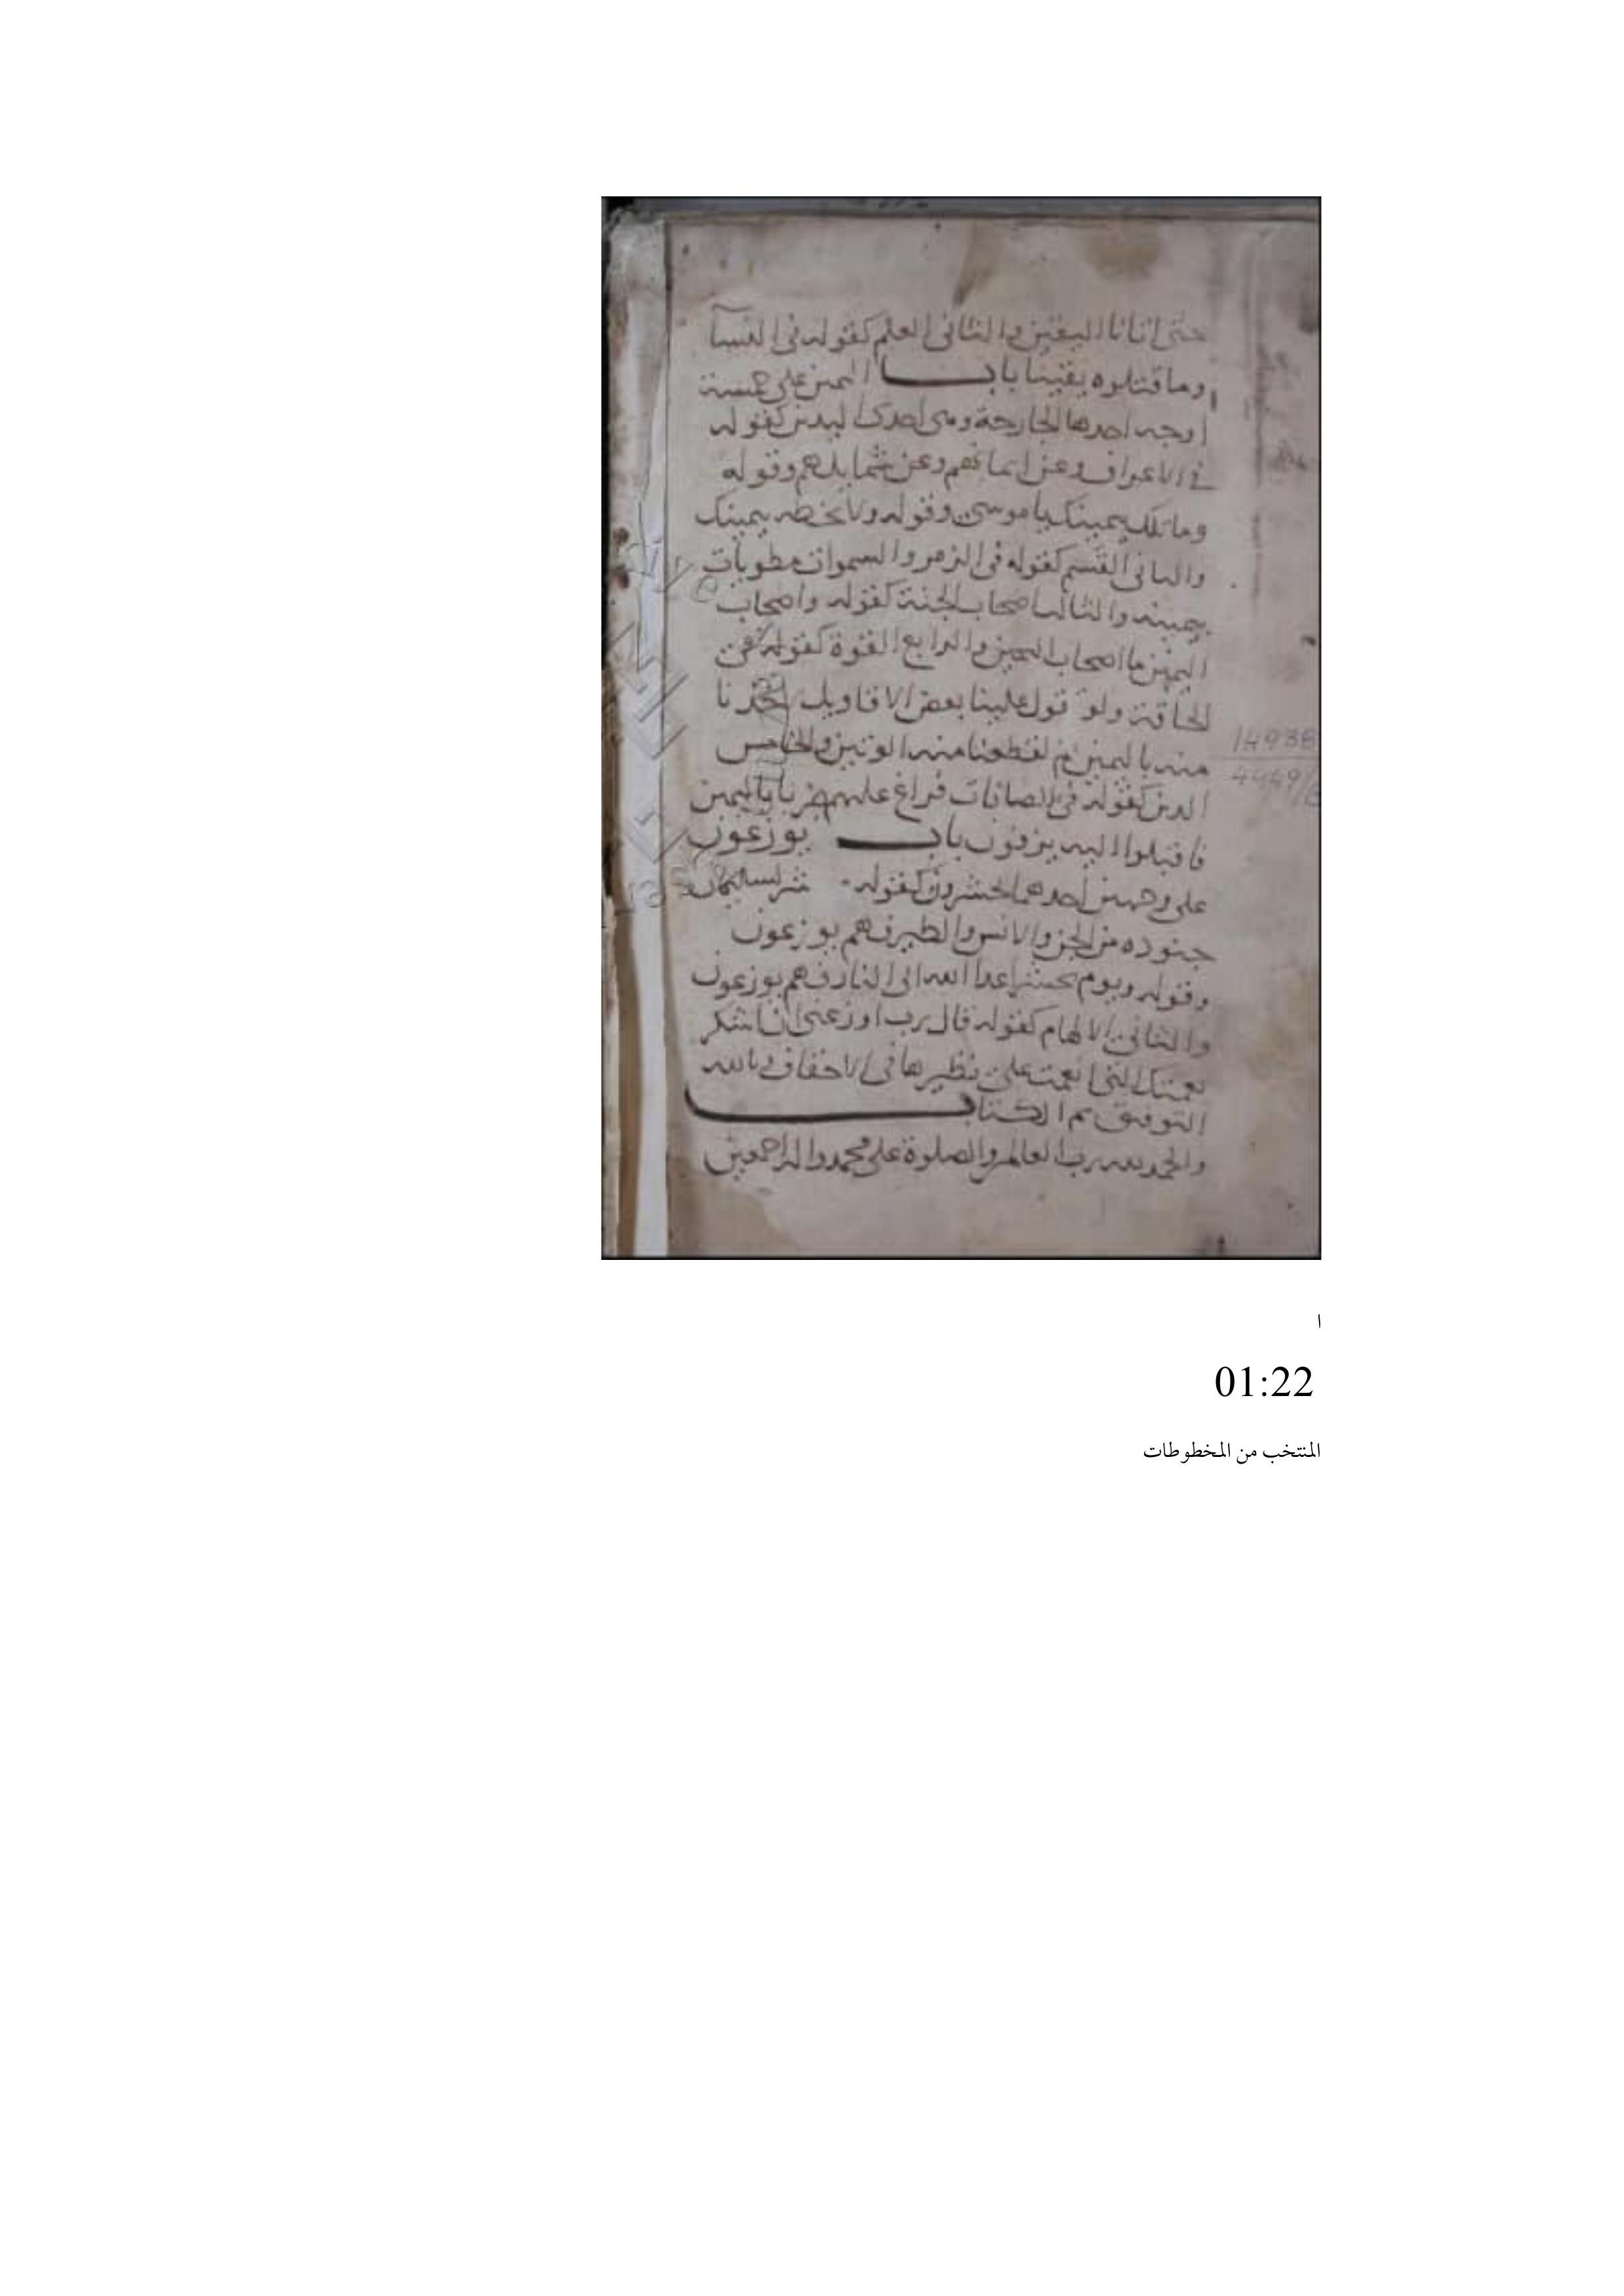 حتى اتانا اليقين والثانى العلم كقوله فى النسآ
وما قتلوه يقينا باب اليمين على خمسة
اوجه احدها الجارحة وهى احدى اليدين كقوله
فى الاعراف وعن ايمانهم وعن شمايلهم وقوله
وما تلك بيمينك ياموسى وقوله ولا تخطه بيمينك
والثانى القسم كقوله فى الزمر والسموات مطويات
بيمينه والثالث اصحاب الجنة كقوله واصحاب
اليمين ما اصحاب اليمين والرابع القوة كقوله فى
الحاقة ولو تقول علينا بعض الاقاويل لاخذنا
منه باليمين ثم لقطعنا منه الوتين والخامس
الدين كقوله فى الصافات فراغ عليهم ضربا باليمين
فاقبلوا اليه يزفون باب يوزعون
على وجهين احدهما يحشرون كقوله لسليمان
جنوده من الجن والانس والطير فهم يوزعون
وقوله ويوم يحشر اعدا الله الى النار فهم يوزعون
والثانى الالهام كقوله قال رب اوزعنى ان اشكر
نعمتك التى انعمت على نظيرها فى الاحقاف وبالله
التوفيق تم الكتاب
والحمد لله رب العالمين والصلوة على محمد واله اجمعين
14938
4449/
ا
01:22
المنتخب من المخطوطات